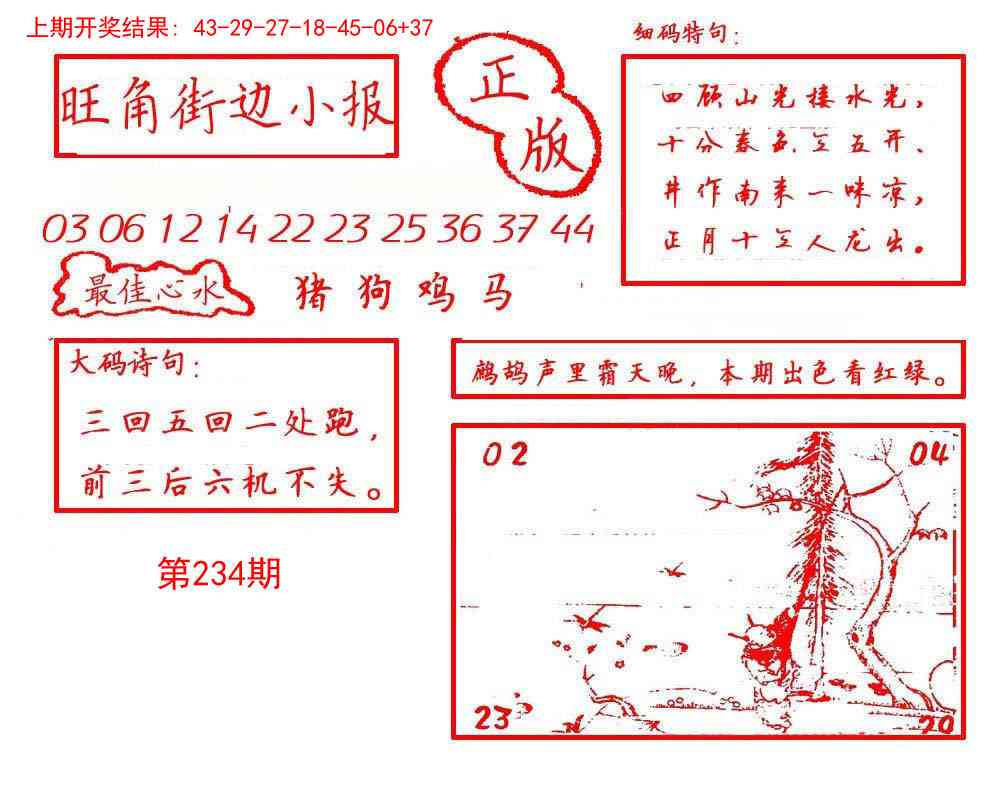 上期开奖结果: 43-29-27-18-45-06+37
旺角街边小报
正版
细码特句:
四顾山光接水光,
十分春色至五开、
井作南来一味凉,
正月十至人龙出。
03 06 12 14 22 23 25 36 37 44
最佳心水
猪 狗 鸡 马
大码诗句:
三回五回二处跑,
前三后六机不失。
鹧鸪声里霜天晚, 本期出色看红绿。
第234期
02
04
23
20